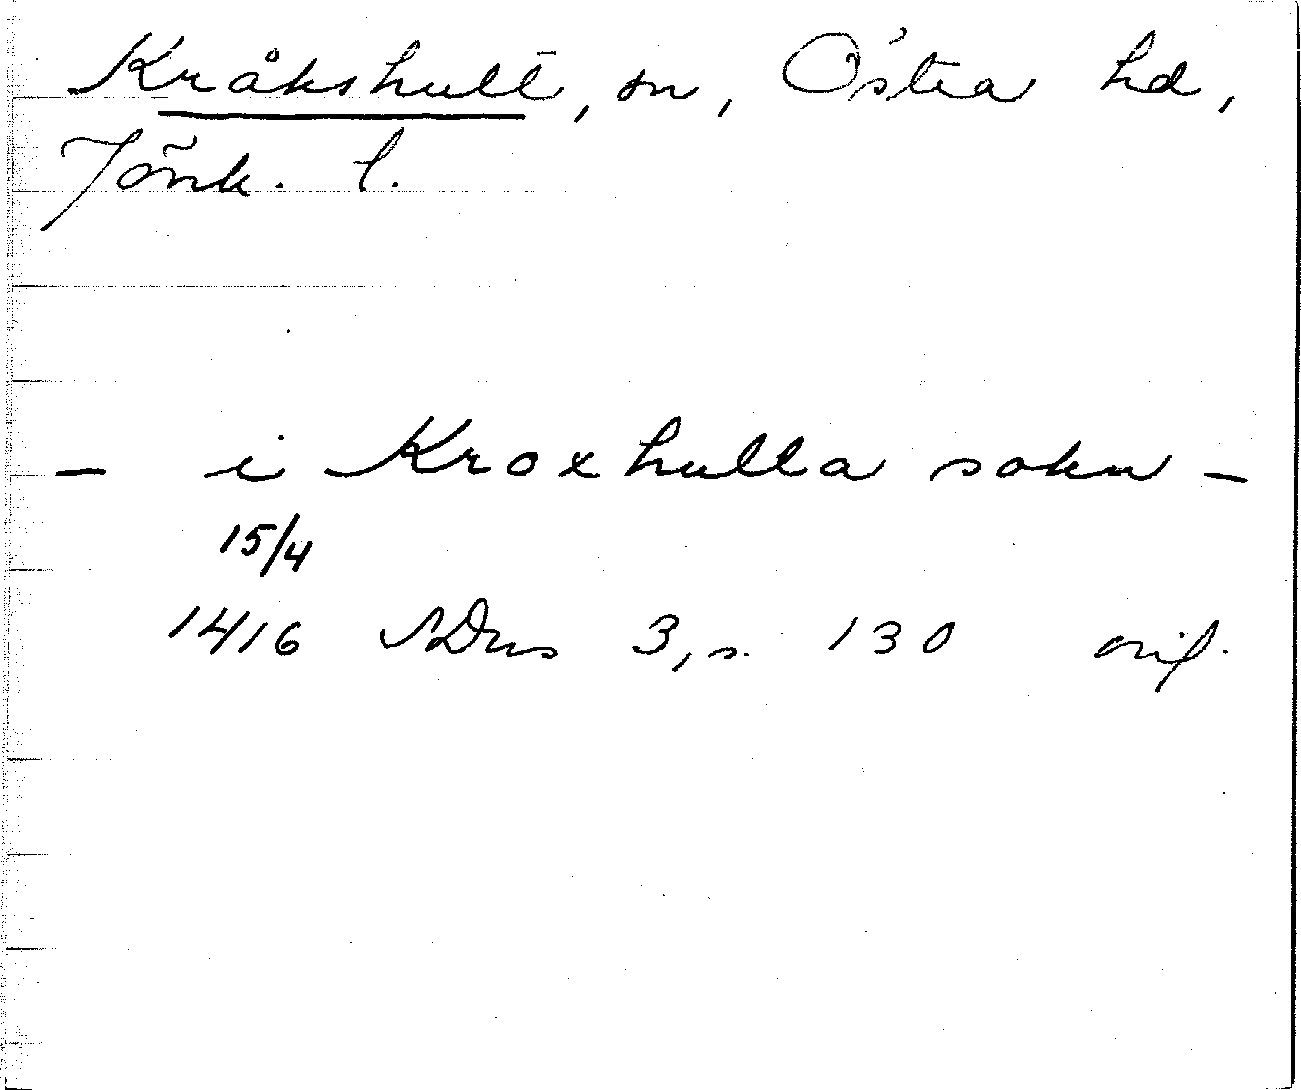 Kråkshult, sn, Östra hd,
Jönk. l.
– i Kroxhulla sokn –
15/4
1416 SDns 3, s. 130 orig.